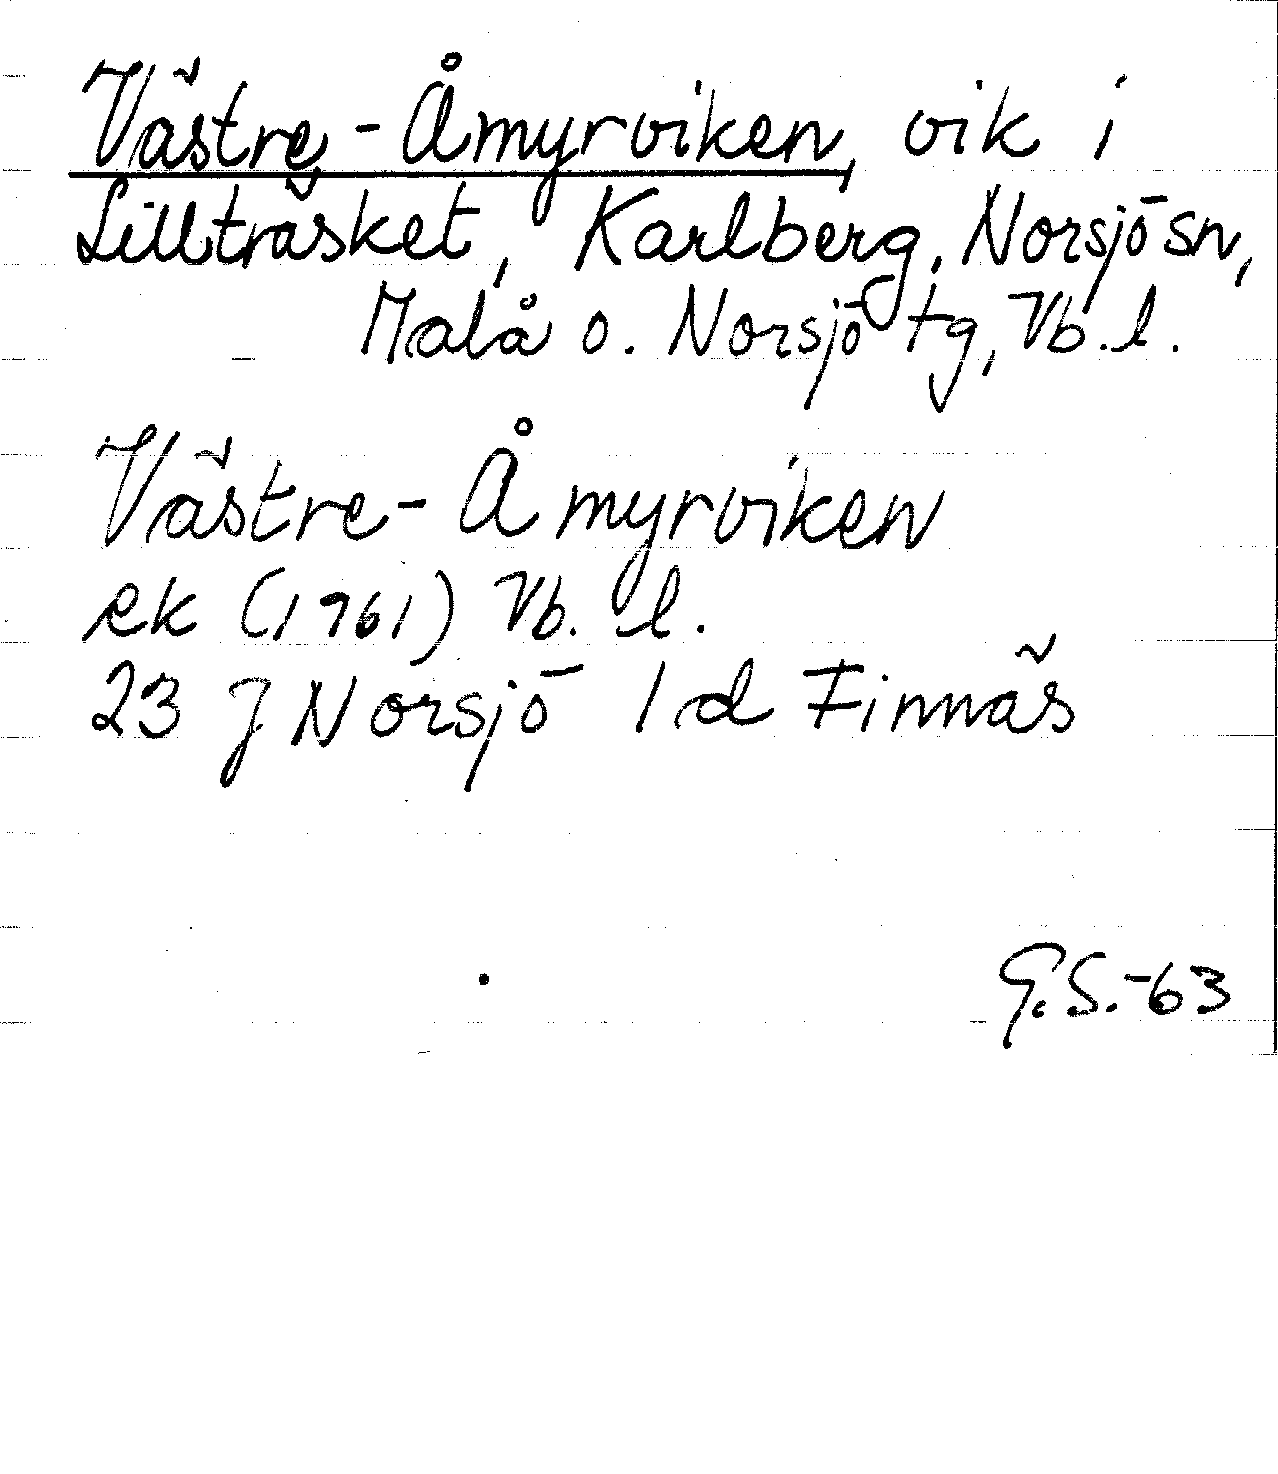 Västre-Åmyrviken, vik i
Lillträsket, Karlberg, Norsjö sn,
Malå o. Norsjö tg, Vb. l.
Västre-Åmyrviken
ek (1961) Vb. l.
23 J Norsjö 1d Finnäs
G.S.-63